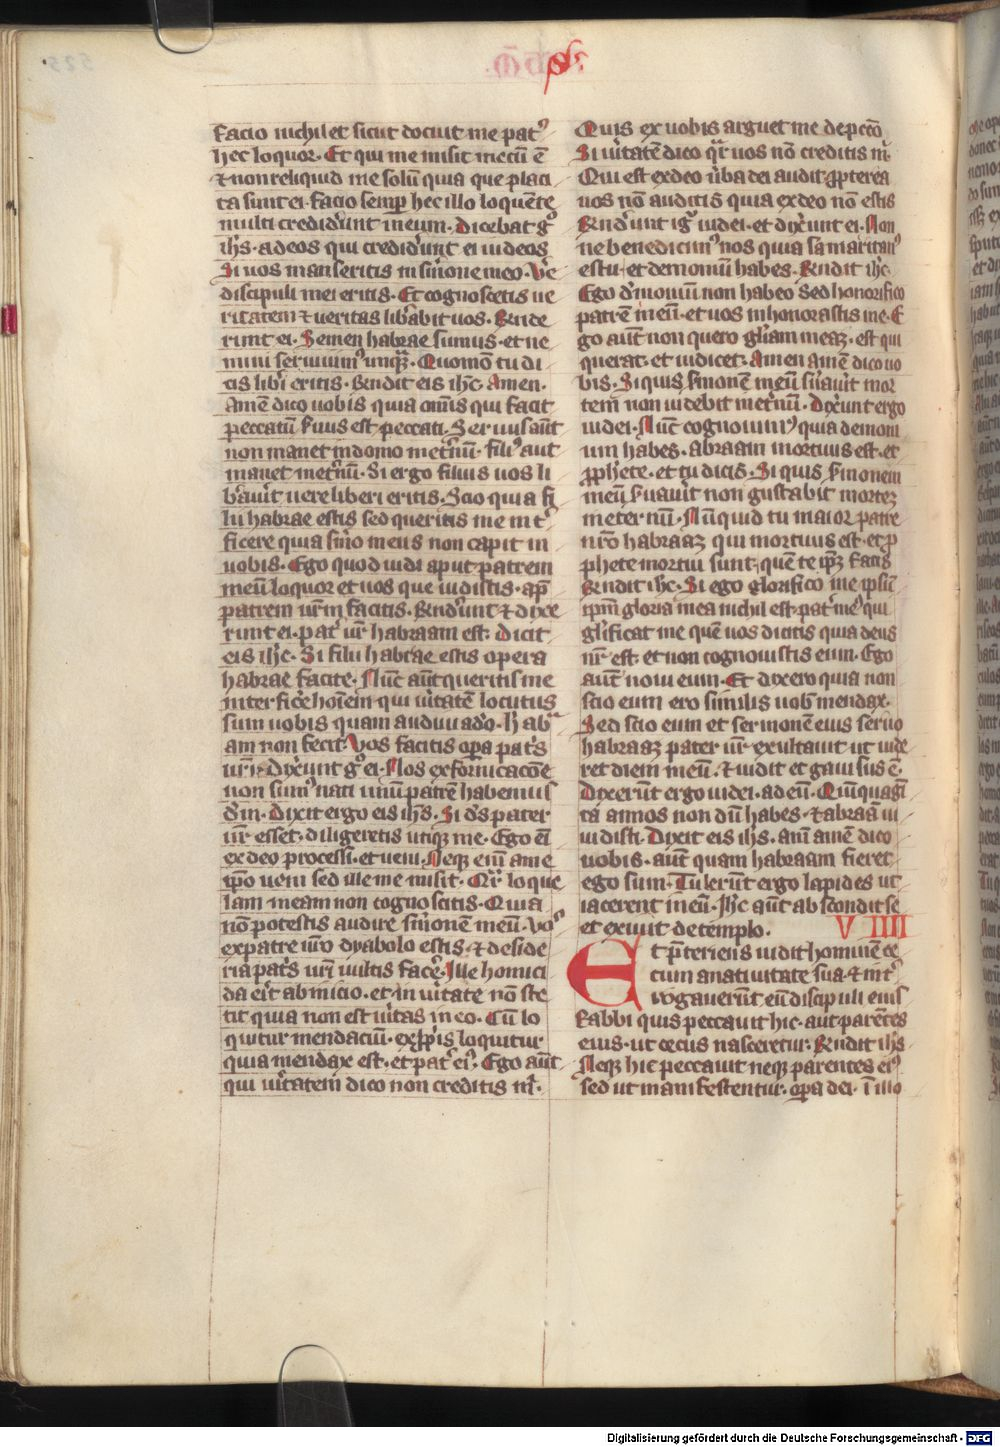 facio nichil et sicut docuit me pat᷒
hec loquor. Et qui me misit mecū ē
⁊ non reliquid me solū quia que placi
ta sunt ei. facio semꝑ hec illo loquēte
multi crediderūt in eum. Dicebat gͦ
ihs. ad eos qui crediderūt ei iudeos
Si uos manseritis in sm̄one meo. Ve͛
discipuli mei eritis. Et cognoscetis ue
ritatem ⁊ ueritas lib͛abit uos. Rn̄de
runt ei. Semen habrae sumus. et ne
mini seruiuim᷒ unqᷓ. Quomō tu di
cis lib͛i eritis. Rn̄dit eis ihc̄. Amen.
Amē dico uobis quia om̄is qui facit
peccatū s͛uus est peccati. Seruus aūt
non manet in domo in et͛nū. fili᷒ aut
manet in et͛nū. Si ergo filius uos li
b͛au͛it uere liberi eritis. Scio quia fi
lii habrae estis sed queritis me int͛
ficere quia sm̄o meus non capit in
uobis. Ego quod uidi aput patrem
meū loquor et uos que uidistis. ap̄
patrem ur̄m facitis. Rn̄d͛unt ⁊ dixe
runt ei. pat͛ ur̄ habraam est. Dicit
eis ihc̄. Si filii habrae estis opera
habrae facite. Nunc aūt queritis me
interfic͛e hoīem qui u͛itatē locutus
sum uobis quam audiui a dō. habᵃ
am non fecit. Vos facitis oꝑa pat͛s
ur̄i. Dix͛unt gͦ ei. Nos ex fornicacōe
non sum᷒ nati unū patrē habemus
dm̄. Dixit ergo eis ihs̄. Si ds̄ pater
ur̄ esset. diligeretis utiqꝫ me. Ego em̄
ex deo processi. et ueni. Neqꝫ enī a me
ip̄o ueni sed ille me misit. Qr̄ loque
lam meam non cognoscitis. Quia
nō potestis audire sm̄onē meū. Vo᷒
ex patre ur̄o dyabolo estis. ⁊ deside
ria pat͛s ur̄i uultis fac͛e. Ille homici
da er͛t ab inicio. et in u͛itate nō ste
tit quia non est u͛itas in eo. Cū lo
quitur mendaciū. ex ꝓp̄ris loquitur
quia mendax est. et pat͛ ei᷒. Ego aūt
qui u͛itatem dico non creditis m͛.
Quis ex uobis arguet me de pcc̄o
Si u͛itatē dico qr̄ uos nō creditis m͛.
Qui est ex deo u͛ba dei audit. ꝓpterea
uos nō auditis quia ex deo nō estis
Rn̄d͛unt igͬ iudei. et dix͛unt ei. Non
ne benedicim᷒ nos quia samaritan᷒
es tu. et demoniū habes. Rn̄dit ihc̄.
Ego d͛moniū non habeo sed honorifico
patrē meū. et uos inhonorastis me. E
go aūt non quero gl͛iam meaꝫ. est qui
querat. et iudicet. Amen amē dico uo
bis. Si quis s͛monē meū s͛uau͛it mor
tem non uidebit in et͛nū. Dix͛unt ergo
iudei. Nūc cognouim᷒ quia demoni
um habes. Abraam mortuus est. et
ꝓphete. et tu dicis. Si quis s͛monem
meū s͛uau͛it non gustabit morteꝫ
in eternū. Nūquid tu maior patre
nr̄o habraaꝫ qui mortuus est. et ꝓ
phete mortui sunt. quē te ip̄ꝫ facis
Rn̄dit ihc̄. Si ego glorifico me ipsū
ip̄m gloria mea nichil est. pat͛ me᷒ qui
gl͛ificat me quē uos dicitis quia deus
nr̄ est. et non cognouistis eum. Ego
aūt noui eum. Et dixero quia non
scio eum ero similis uob͛ mendax.
Sed scio eum et sermonē eius seruo
habraaꝫ pater ur̄ exultauit ut uide
ret diem meū. ⁊ uidit et gauisus ē.
Dixerūt ergo iudei. ad eū. Quīquagī
ta annos non dū habes. ⁊ abraā ui
uidisti. Dixit eis ihs. am̄ amē dico
uobis. aūt quam habraam fieret
ego sum. Tulerūt ergo lapides ut
iacerent in eū. Ihc̄ aūt abscondit se
et exiuit de templo. V IIII
Et p̄teriens uidit hominē ce
cum a natiuitate sua. ⁊ int͛
rogauerūt eū discipuli eius
Rabbi quis peccauit hic. aut parētes
eius. ut cecus nasceretur. Rn̄dit ihs̄
Neqꝫ hic peccauit neqꝫ parentes ei᷒
sed ut manifestentur. oꝑa dei. ī illo
Digitalisierung gefördert durch die Deutsche Forschungsgemeinschaft - DFG